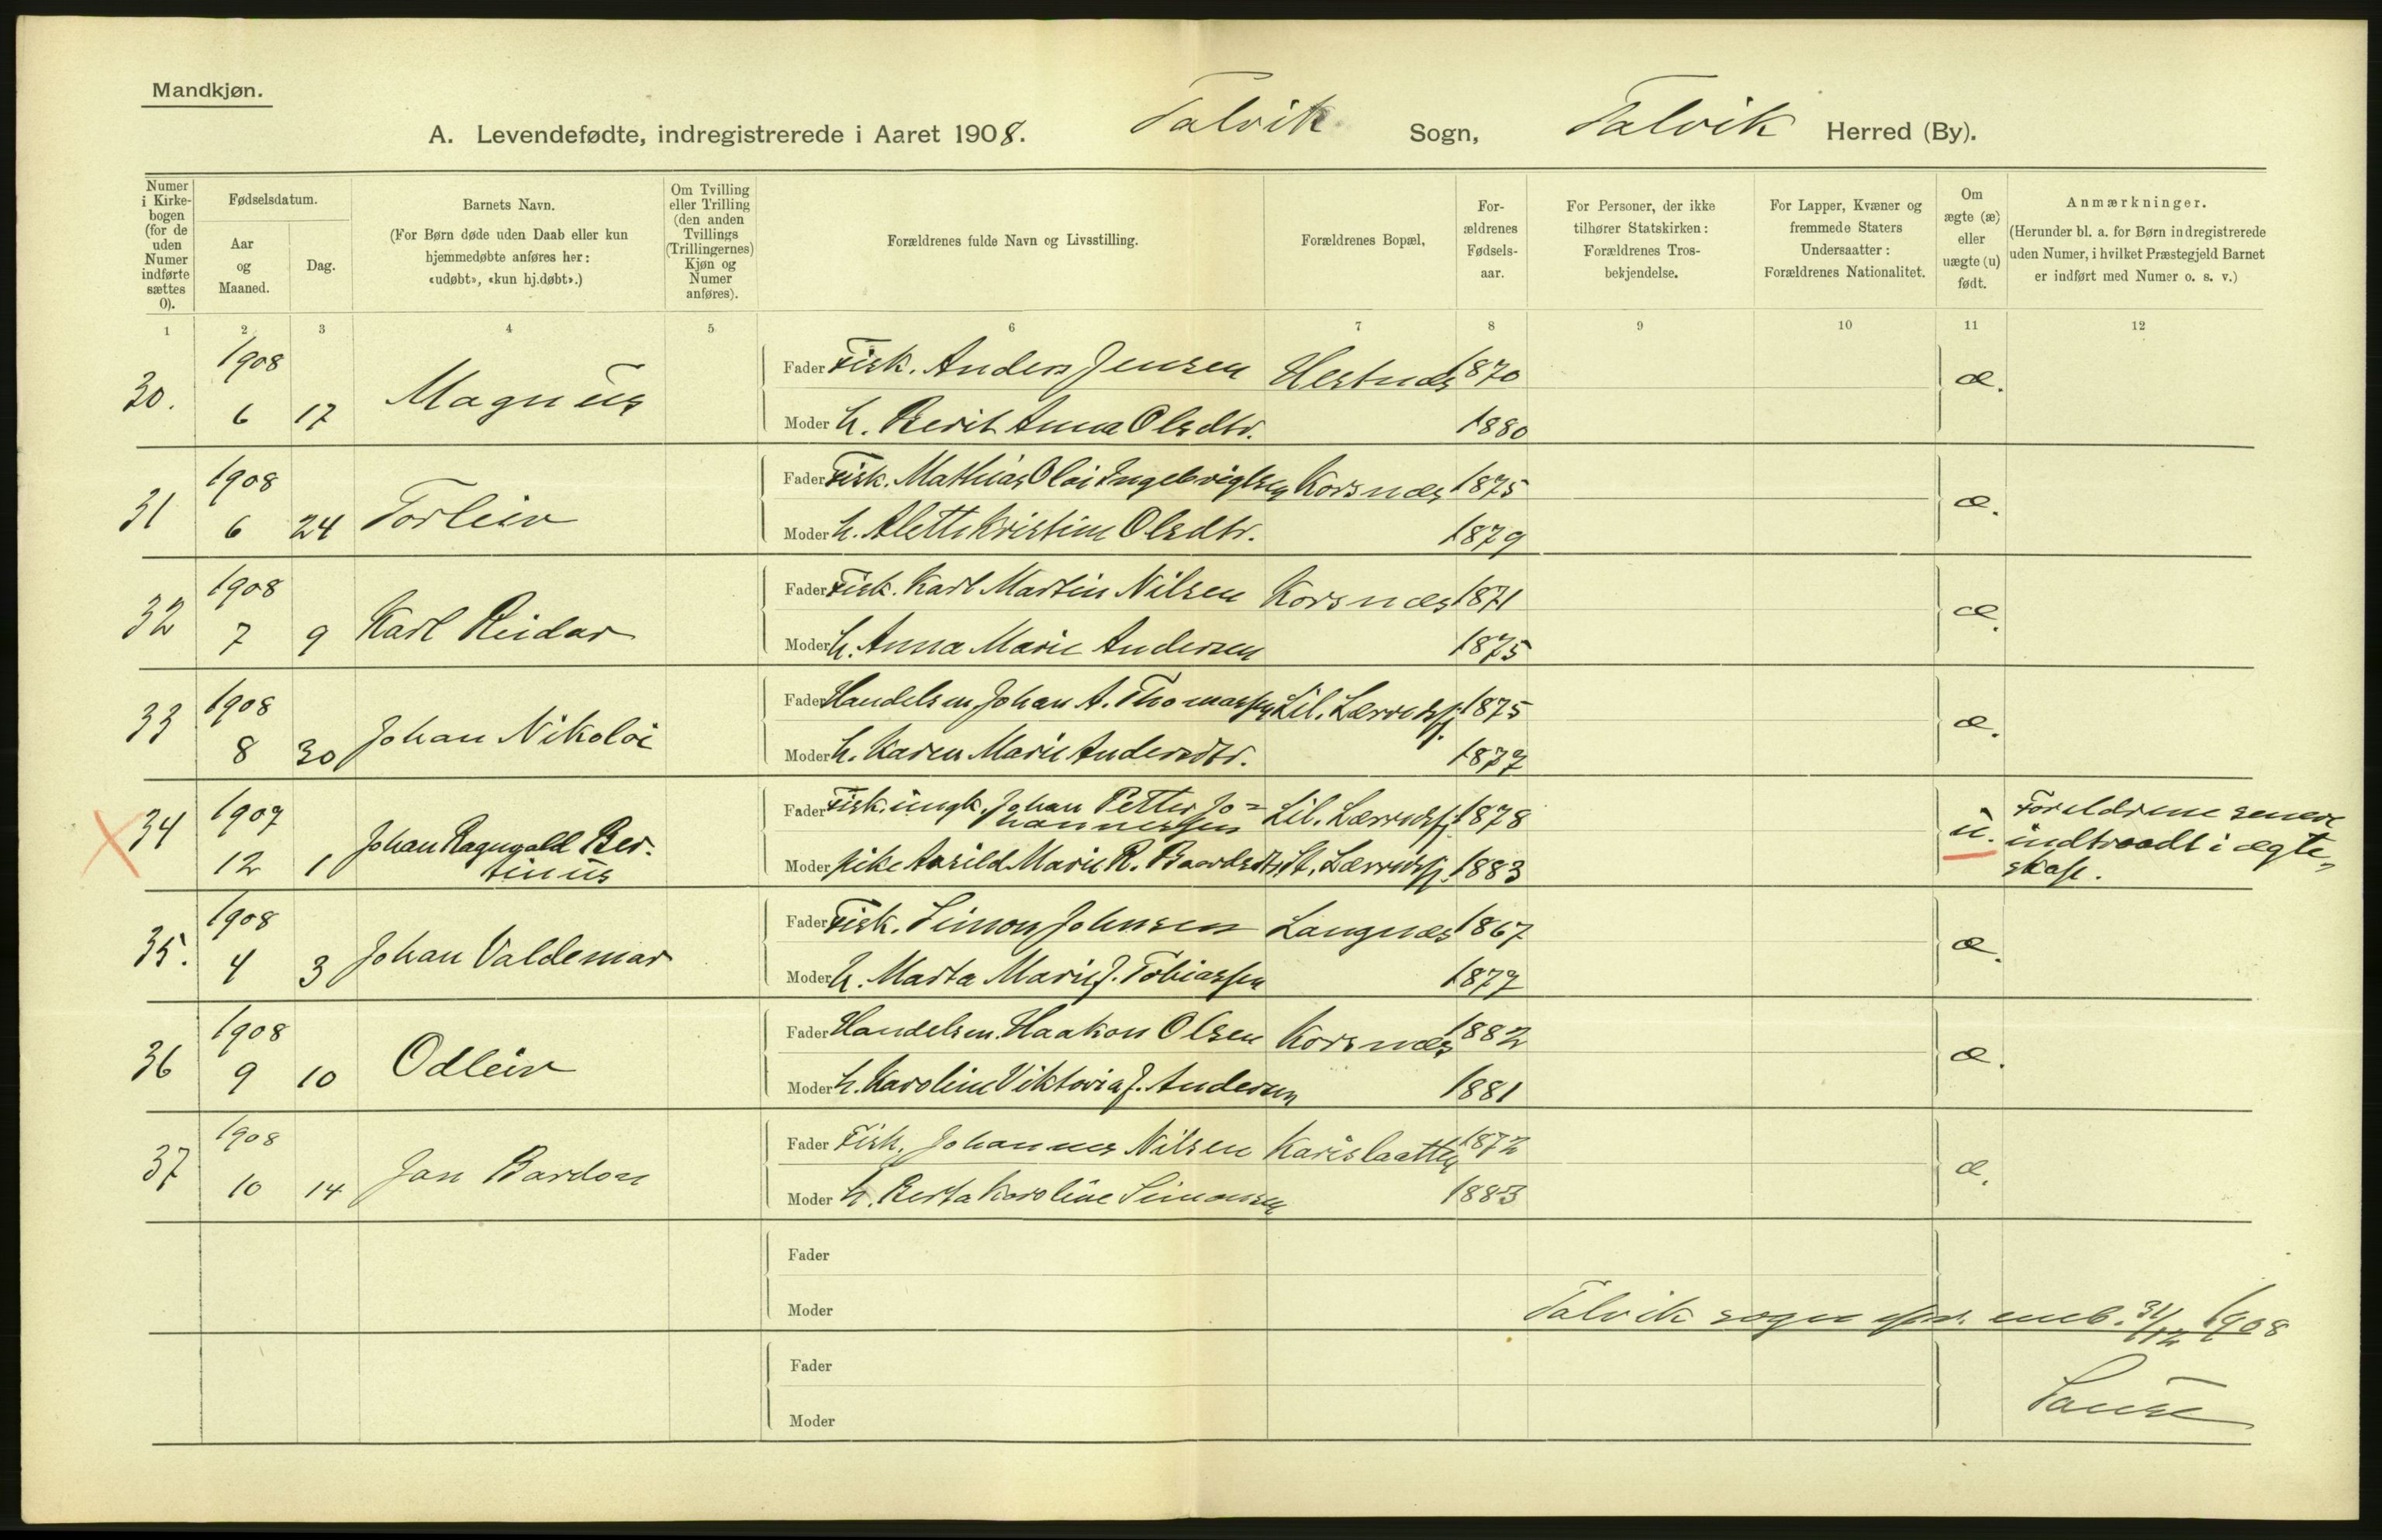 Mandkjøn.
A. Levendefødte, indregistrerede i Aaret 1908. Talvik Sogn, Talvik Herred (By).
Numer i Kirke-bogen (for de uden Numer indførte sættes 0).
Fødselsdatum.
Aar og Maaned.
Dag.
Barnets Navn.
(For Børn døde uden Daab eller kun
hjemmedøbte anføres her:
«udøbt», «kun hj.døbt».)
Om Tvilling
eller Trilling
(den anden
Tvillings
(Trillingernes)
Kjøn og
Numer
anføres).
Forældrenes fulde Navn og Livsstilling.
Forældrenes Bopæl,
For-
ældrenes
Fødsels-
aar.
For Personer, der ikke
tilhører Statskirken:
Forældrenes Tros-
bekjendelse.
For Lapper, Kvæner og
fremmede Staters
Undersaatter:
Forældrenes Nationalitet.
Om
ægte (æ)
eller
uægte (u)
født.
Anmærkninger.
(Herunder bl. a. for Børn indregistrerede
uden Numer, i hvilket Præstegjeld Barnet
er indført med Numer o. s. v.)
1 2 3 4 5 6 7 8 9 10 11 12
30. 1908 6 17 Magnus
Fader Fisk. Anders Jensen Hestnæs 1870 æ.
Moder h. Berit Anna Olsdtr. 1880
31 1908 6 24 Torleiv
Fader Fisk. Mathias Olai Ingebrigtsen Korsnæs 1875 æ.
Moder h. Alette Kristine Olsdtr. 1879
32 1908 7 9 Karl Reidar
Fader Fisk. Karl Martin Nilsen Korsnæs 1871 æ.
Moder h. Anna Marie Andersen 1875
33 1908 8 30 Johan Nikolai
Fader Handelsm. Johan A. Thomassen Lil. Lerredsfj. 1875 æ.
Moder h. Karen Marie Andersdtr. 1877
34 1907 12 1 Johan Ragnvald Ber-
tinus
Fader Fisk. ungk. Johan Petter Jo=
hannessen Lil. Lerredsfj. 1878 u. Foreldrene senere
indtraadt i ægte=
skap.
Moder pike Marie R. St. Lerredsfj. 1883
35. 1908 4 3 Johan Valdemar
Fader Fisk. Simon Johnsen Langnæs 1867 æ.
Moder h. Marta Marie J. Tobiassen 1877
36 1908 9 10 Odleiv
Fader Handelsm. Haakon Olsen Korsnæs 1882 æ.
Moder h. Karoline Viktoria J. Andersen 1881
37 1908 10 14 Jan Bardon
Fader Fisk. Johannes Nilsen 1872 æ.
Moder h. Berta Karoline Simonsen 1883
Fader
Moder
Talvik sogn emb. 31/12 1908
Fader
Moder